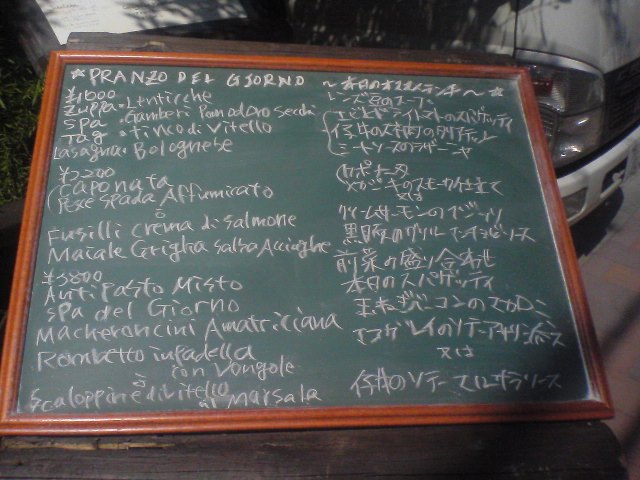 ★PRANZO DEL GIORNO ～本日のオススメランチ～★
¥1600
Zuppa・Lenticche レンズ豆のスープ
Spa・Gamberi Pomodoro secchi エビとドライトマトのスパゲッティ
Tag・tinco di Vitello 仔牛の
Lasagna・Bolognese ミートソースのラザーニャ
¥2200
Caponata カポナータ
Pesce spada Affumicato メカジキのスモーク仕立て
o 又は
Fusilli crema di salmone クリームサーモンのフジッリ
Maiale Griglia salsa Acciughe 黒豚のグリル アンチョビソース
¥3800
Antipasto Misto 前菜の盛り合わせ
Spa del Giorno 本日のスパゲッティ
Maccheroncini Amatriciana 玉ねぎとベーコンのマカロニ
Rombetto in padella
con Vongole
o 又は
Scaloppine di vitello 仔牛のソテー マルサラソース
al Marsala